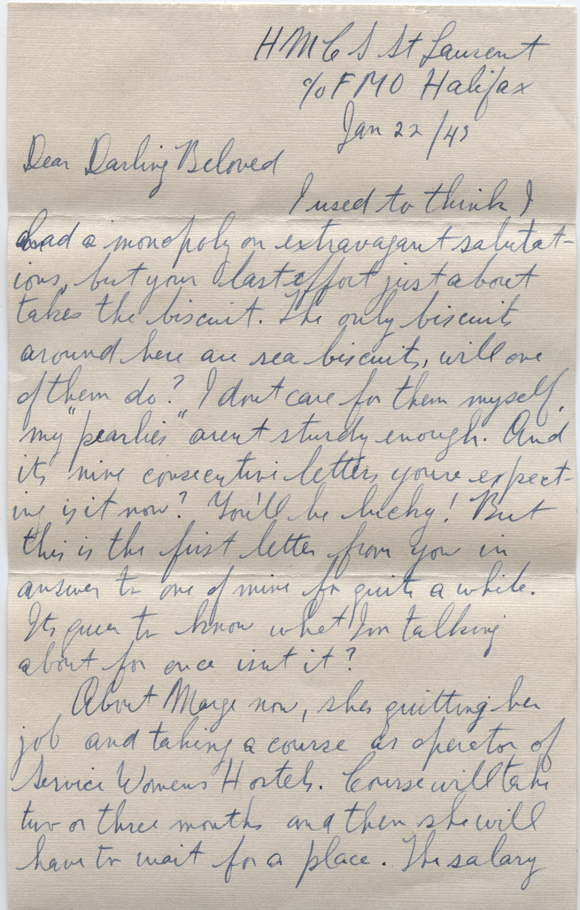 HMCS St Laurent
c/o FMO Halifax
Jan 22/43
Dear Darling Beloved
I used to think I
had a monopoly on extravagant salutat-
ions, but your last effort just about
takes the biscuit. The only biscuits
around here are sea biscuits, will one
of them do? I dont care for them myself,
my "pearlies" arent sturdy enough. And
its nine consecutive letters youre expect-
ing is it now? You'll be lucky! But
this is the first letter from you in
answer to one of mine for quite a while.
Its queer to know what Im talking
about for once isnt it?
About Marge now, shes quitting her
job and taking a course as operator of
Service Womens Hostels. Course will take
two or three months and then she will
have to wait for a place. The salary